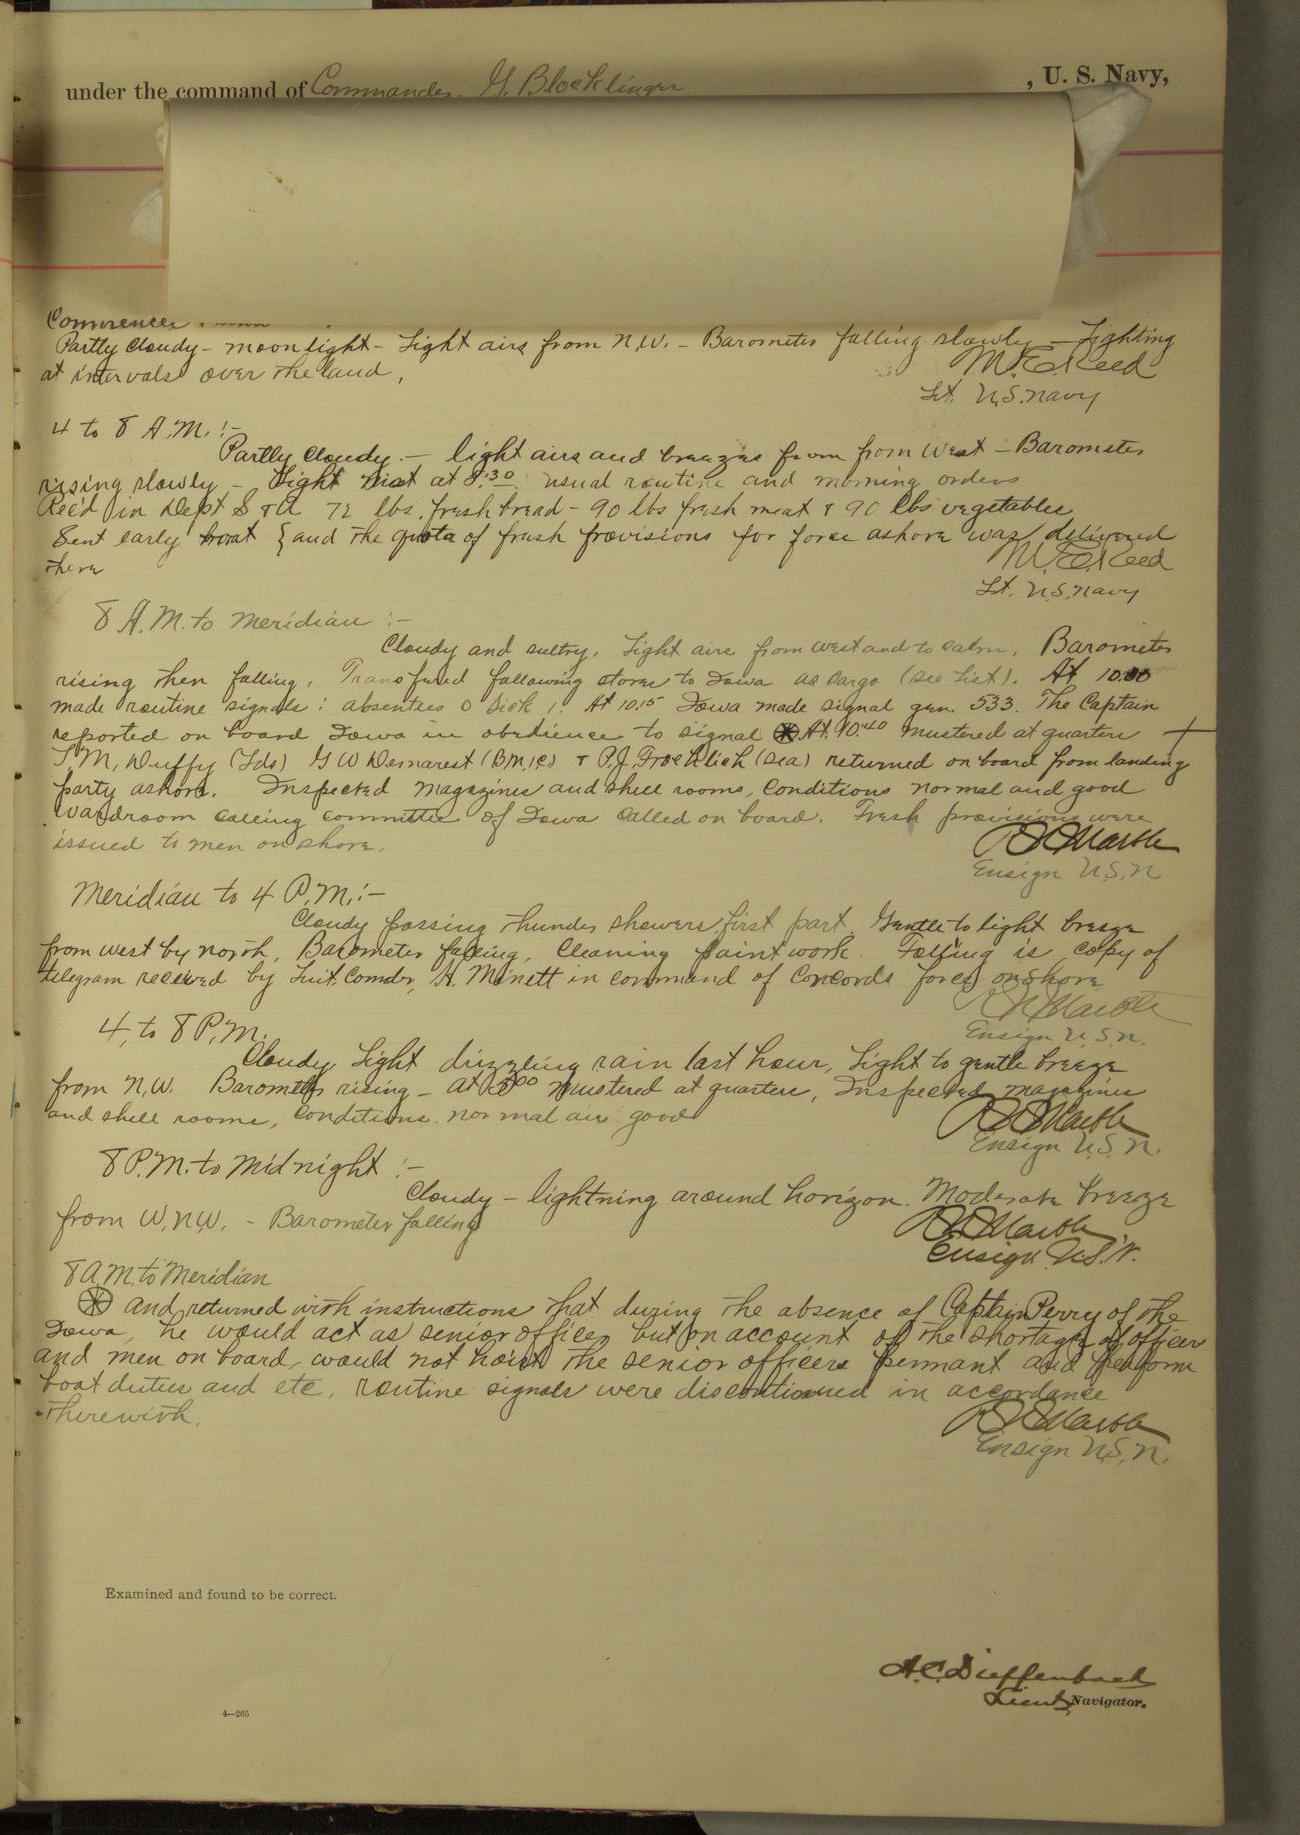 under the command of Commander G. Blocklinger , U. S. Navy,
Partly Cloudy - moonlight - Light airs from N.W. - Barometer falling slowly - Lighting
at intervals over the land.
M. E. Reed
Lt. U.S. Navy
4 to 8 A.M. :-
Partly Cloudy - light airs and breezes from from West - Barometer
rising slowly - Light mist at 8.30 usual routine and morning orders
Rec'd in Dept S & A 72 lbs. fresh bread - 90 lbs fresh meat & 90 lbs vegetables
Sent early boat { and the quota of fresh provisions for force ashore was delivered
there
M. E. Reed
Lt. U.S. Navy
8 A.M. to Meridian :-
Cloudy and sultry. Light airs from west and to calm. Barometer
rising then falling. Transfered following stores to Iowa as cargo (see list). At 10.00
made routine signals: absentees 0 sick 1. At 10.15 Iowa made signal gen. 533. The Captain
reported on board Iowa in obedience to signal ⊛ At 10.40 mustered at quarters +
T. M. Duffy (Lds) G W Demarest (B.M.1c) & P.J. Froehlich (Sea) returned on board from landing
party ashore. Inspected magazines and shell rooms, Conditions normal and good
Wardroom calling committee of Iowa called on board. Fresh provisions were
issued to men on shore.
Marble
Ensign U.S.N
Meridian to 4 P.M. :-
Cloudy passing thunder showers first part. Gentle to light breeze
from west by north, Barometer falling, Cleaning paint work. Folling is copy of
telegram received by Luit. Comdr, H. Minett in command of Concords force on shore
Marble
Ensign U.S.N.
4 to 8 P.M.
Cloudy, Light drizzling rain last hour, Light to gentle breeze
from N.W. Barometer rising - At 5.00 mustered at quarters, Inspected magazines
and shell rooms, Conditions normal and good
Marble
Ensign U.S.N.
8 P.M. to Midnight :-
Cloudy - lightning around horizon. Moderate breeze
from W.N.W. - Barometer falling
Marble
Ensign U.S.N.
8 A.M. to Meridian
⊛ and returned with instructions that during the absence of Captain Perry of the
Iowa, he would act as senior officer but on account of the shortage of officer
and men on board, would not hoist the senior officers pennant and preform
boat duties and etc. routine signals were discontinued in accordance
therewith.
Marble
Ensign U.S.N.
Examined and found to be correct.
A. C. Dieffenbach
Lieut, Navigator.
4—265